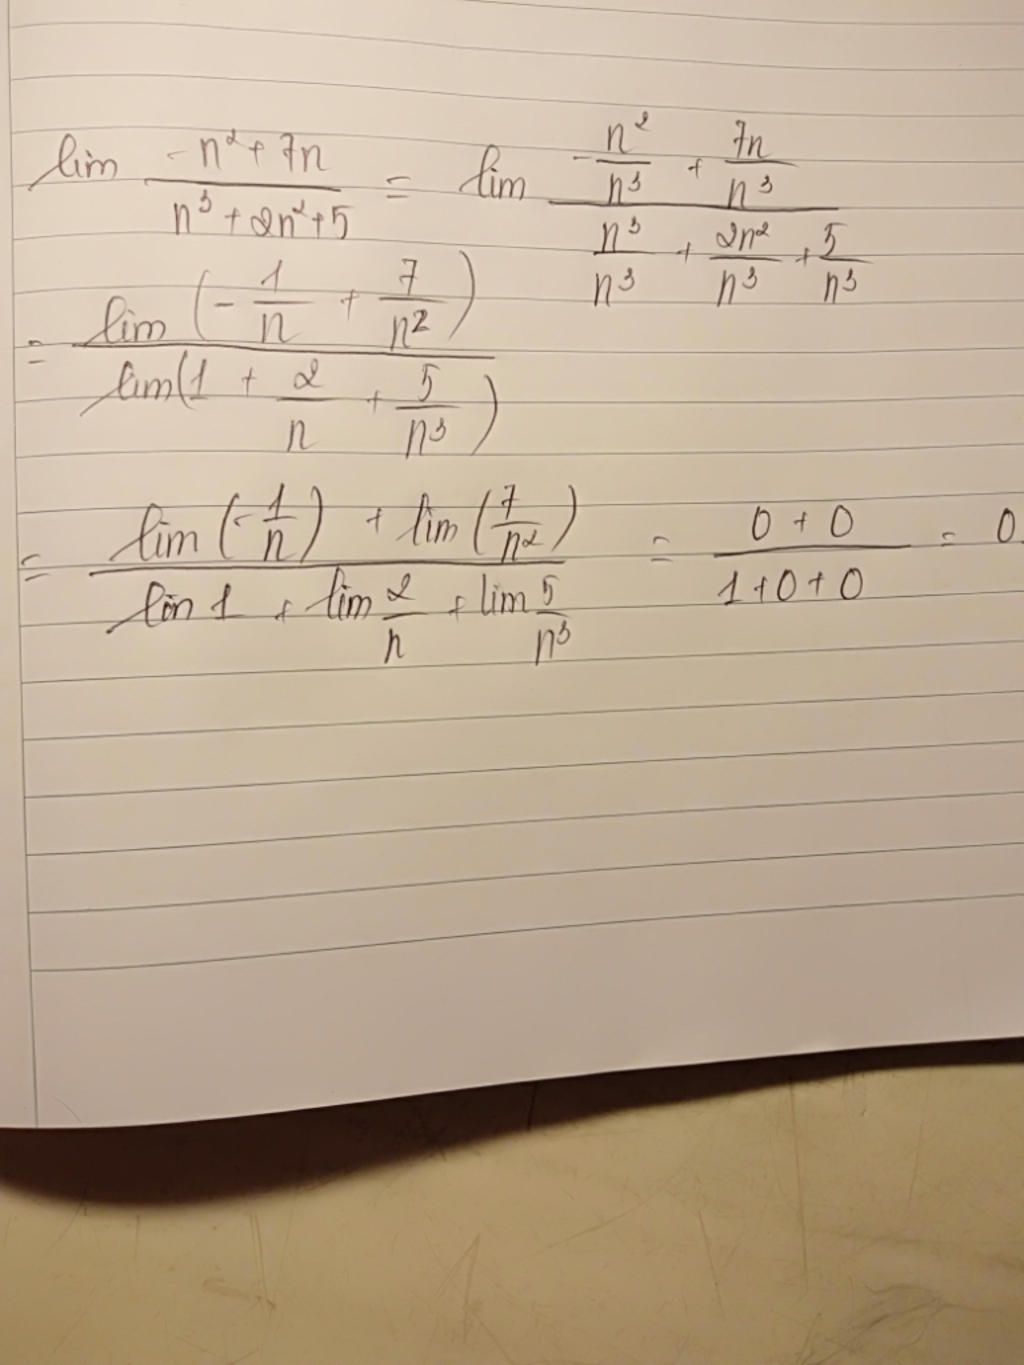 lim (-n² + 7n)/(n³ + 2n² + 5) = lim (-n²/n³ + 7n/n³)/(n³/n³ + 2n²/n³ + 5/n³)
= lim(-1/n + 7/n²)/lim(1 + 2/n + 5/n³)
= (lim(-1/n) + lim(7/n²))/(lim 1 + lim 2/n + lim 5/n³) = (0 + 0)/(1 + 0 + 0) = 0.